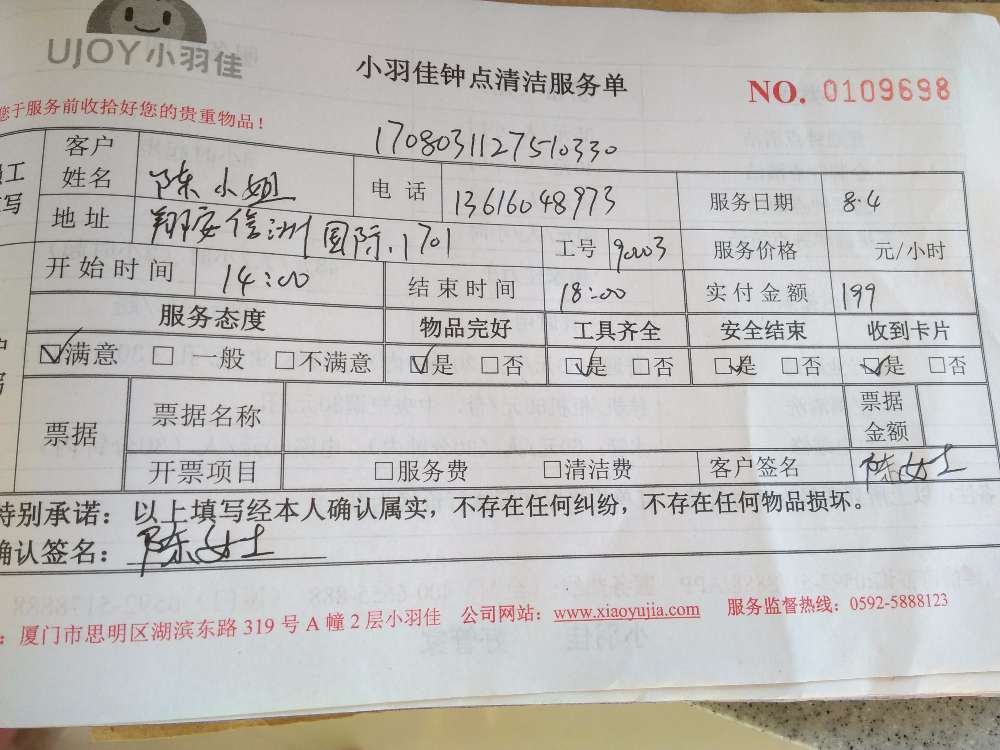 UJOY小羽佳
小羽佳钟点清洁服务单
NO. 0109698
您于服务前收拾好您的贵重物品！
1708031127510330
工 客户姓名 陈小姐 电话 13616048973 服务日期 8.4
写 地址 翔安信洲国际.1701 工号 90003 服务价格 元/小时
开始时间 14:00 结束时间 18:00 实付金额 199
服务态度 物品完好 工具齐全 安全结束 收到卡片
☑满意 □一般 □不满意 ☑是 □否 ☑是 □否 ☑是 □否 ☑是 □否
票据 票据名称 票据金额
开票项目 □服务费 □清洁费 客户签名 陈女士
特别承诺：以上填写经本人确认属实，不存在任何纠纷，不存在任何物品损坏。
确认签名：陈女士
：厦门市思明区湖滨东路 319 号 A 幢 2 层小羽佳 公司网站：www.xiaoyujia.com 服务监督热线：0592-5888123